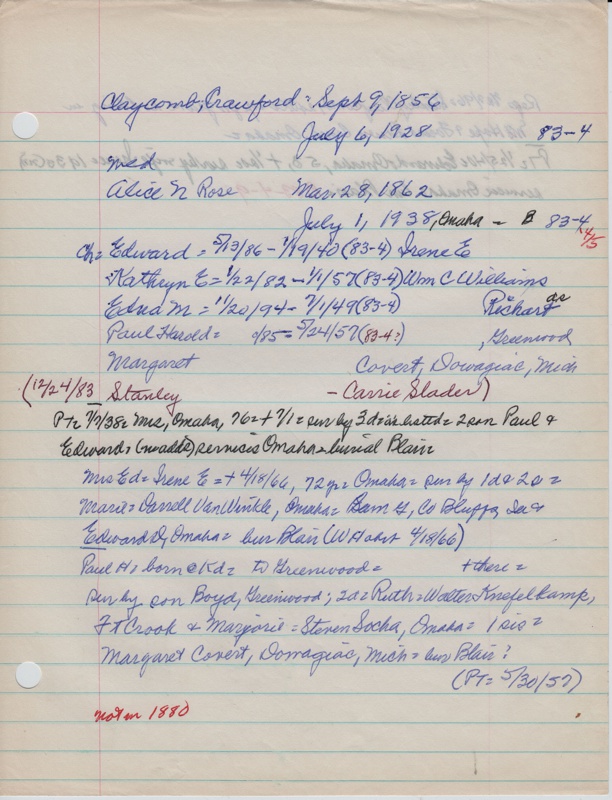 Claycomb, Crawford = Sept 9, 1856
July 6, 1928 83-4
Med
Alice N Rose Mar. 28, 1862
July 1, 1938, Omaha - B 83-4
4/5
Ch = Edward = 5/13/86 - 1/19/40 (83-4) Irene E
Kathryn E = 1/22/82 - 1/1/57 (83-4) Wm C Williams
Edna M = 11/20/94 - 7/1/49 (83-4) Richards
Paul Harold = 9/85 = 5/24/57 (83-4?) , Greenwood
Margaret Covert, Dowagiac, Mich
(12/24/83 Stanley - Carrie Slader)
PT = 7/7/38 = Mrs, Omaha, 76 = + 7/1 = sur by 3 d = as listed = 2 son Paul &
Edward, (no adds) services Omaha = burial Blair
Mrs Ed = Irene E = + 4/18/66, 72 yr = Omaha = sur by 1 d & 2 s =
Marie = Darrell VanWinkle, Omaha = Sam G, Co Bluffs, Ia &
Edward D, Omaha = bur Blair (WH obit 4/18/66)
Paul H = born @ Kd = to Greenwood = + there =
sur by son Boyd, Greenwood; 2 d = Ruth = Walter Knefelkamp,
Ft Crook & Marjorie = Steven Socha, Omaha = 1 sis =
Margaret Covert, Dowagiac, Mich = bur Blair?
(PT = 5/30/57)
not in 1880